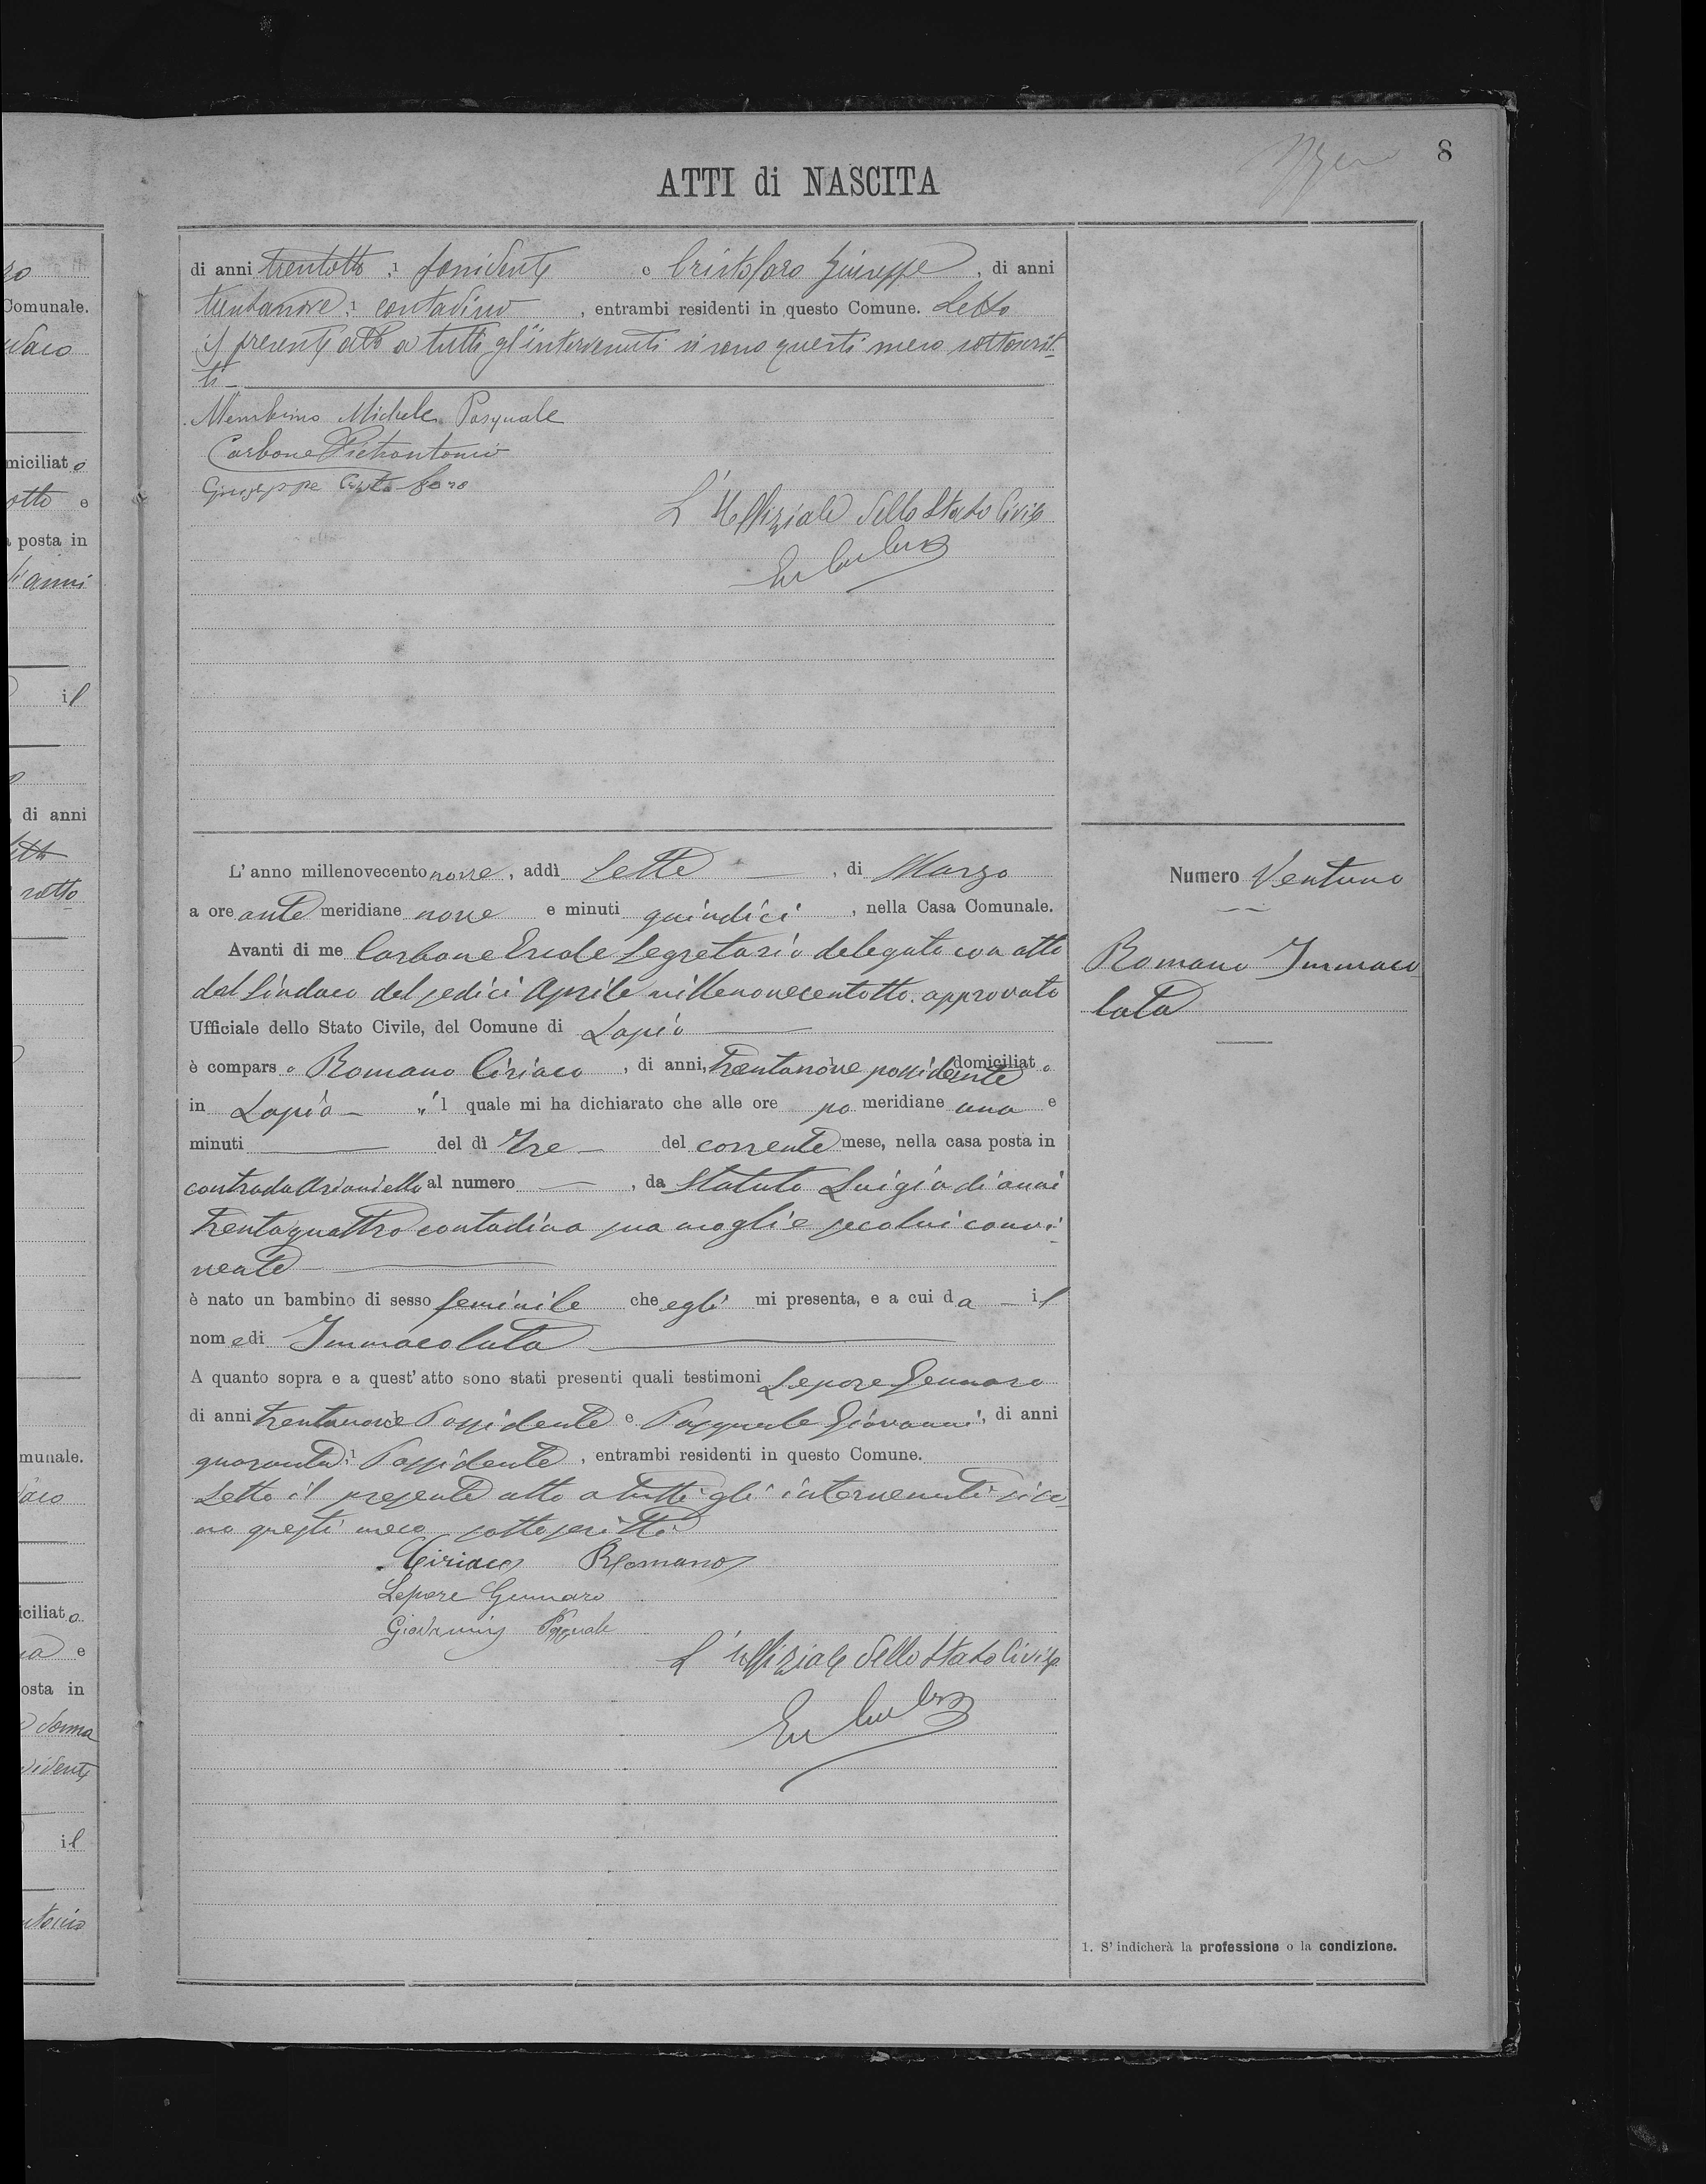 8
ATTI di NASCITA
di anni trentotto, 1 possidente e Cristofaro Giuseppe, di anni
trentanove, 1 contadino, entrambi residenti in questo Comune. Letto
il presente atto a tutti gl'intervenuti si sono questi meco sottoscrit-
ti
Membrino Michele Pasquale
Carbone Pietrantonio
Giuseppe Cristofaro
L'Uffiziale dello Stato Civile
L'anno millenovecento nove, addì Sette, di Marzo
a ore ante meridiane nove e minuti quindici, nella Casa Comunale.
Avanti di me Carbone Ercole Segretario delegato con atto
del Sindaco del sedici Aprile millenovecentotto approvato
Ufficiale dello Stato Civile, del Comune di Lapio
è comparso Romano Ciriaco, di anni, trentanove possidente domiciliato
in Lapio il quale mi ha dichiarato che alle ore po meridiane una e
minuti — del dì tre del corrente mese, nella casa posta in
contrada Arianiello al numero —, da Statuto Luigia di anni
trentaquattro contadina sua moglie secolui convi-
vente
è nato un bambino di sesso feminile che egli mi presenta, e a cui da il
nome di Immacolata
A quanto sopra e a quest'atto sono stati presenti quali testimoni Lepore Gennaro
di anni trentanove Possidente e Pasquale Giovanni, di anni
quaranta, 1 Possidente, entrambi residenti in questo Comune.
Letto il presente atto a tutti gli intervenuti si so-
no questi meco sottoscritti
Ciriaco Romano
Lepore Gennaro
Giovanni Pasquale
L'uffiziale dello Stato Civile
Numero Ventuno
Romano Immaco
lata
1. S'indicherà la professione o la condizione.
Comunale.
miciliato
otto e
posta in
di anni
il
di anni
sotto
munale.
iciliato
e
osta in
il